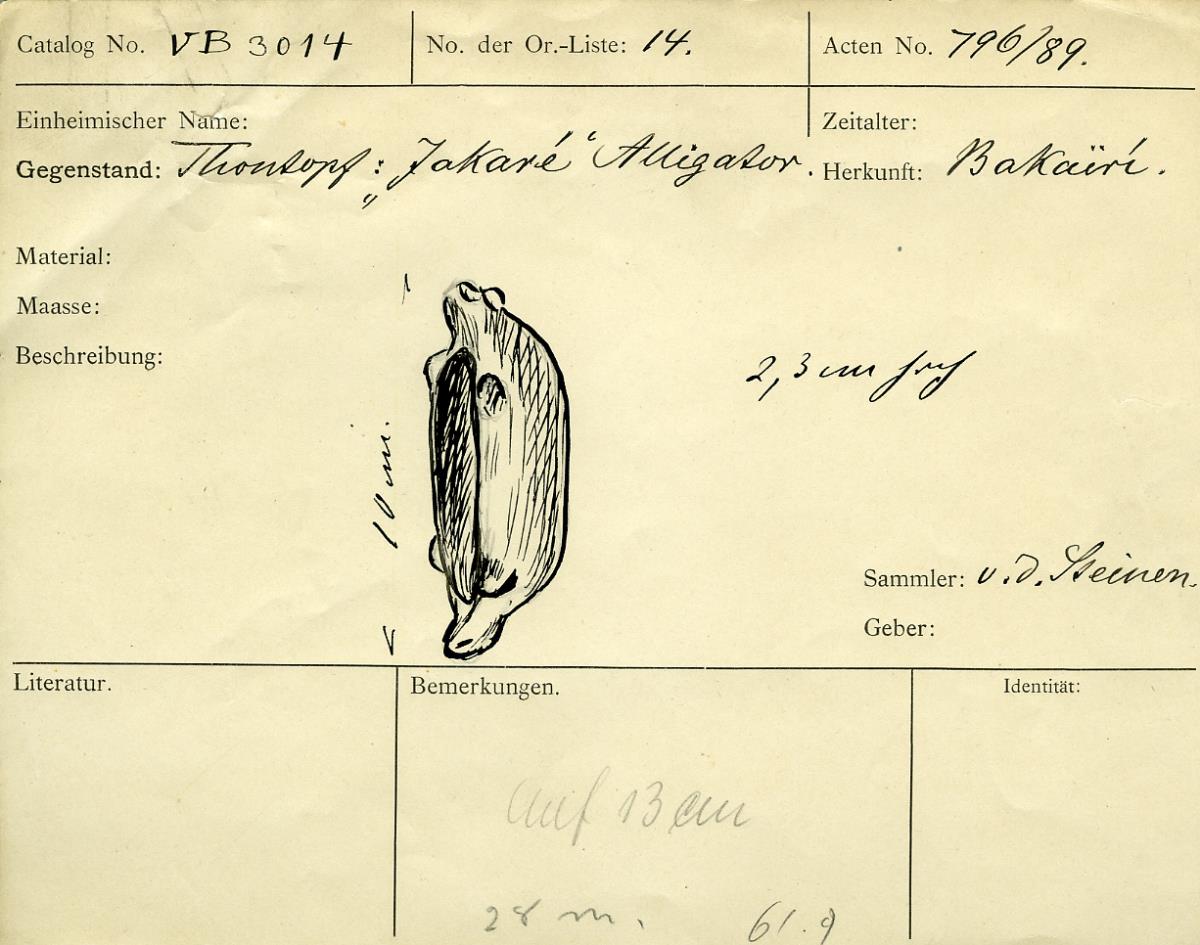 Catalog No. VB 3014
No. der Or.-Liste: 14.
Acten No. 796/89.
Einheimischer Name:
Zeitalter:
Gegenstand: Thontopf: „Jakaré“ Alligator.
Herkunft: Bakaïrí.
Material:
Maasse:
Beschreibung:
2,3 cm hoch
10 cm.
Sammler: v. d. Steinen.
Geber:
Literatur.
Bemerkungen.
Identität:
auf 13 cm
28 m.